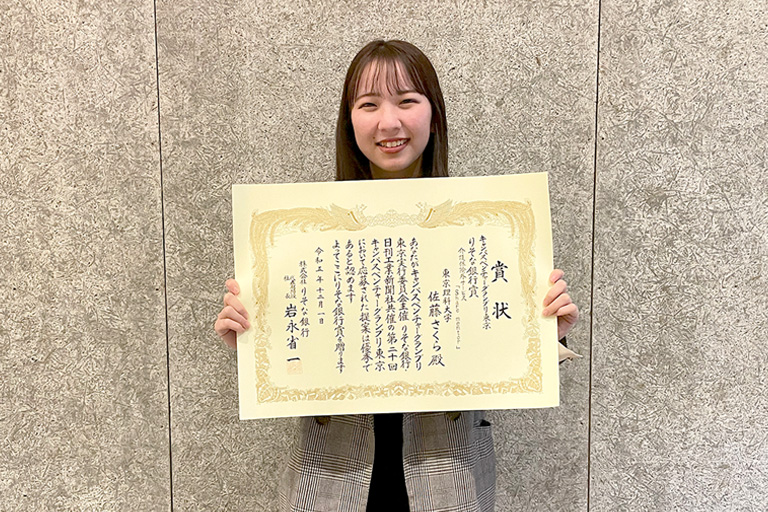 賞状
キャンパスベンチャーグランプリ東京
りそな銀行賞
東京理科大学
佐藤さくら殿
あなたがキャンパスベンチャーグランプリ
東京実行委員会主催 りそな銀行・
日刊工業新聞社共催の第二十回
キャンパスベンチャーグランプリ東京
において応募された提案は優秀で
あると認めます
よってここにりそな銀行賞を贈ります
令和五年十二月一日
株式会社りそな銀行
岩永省一